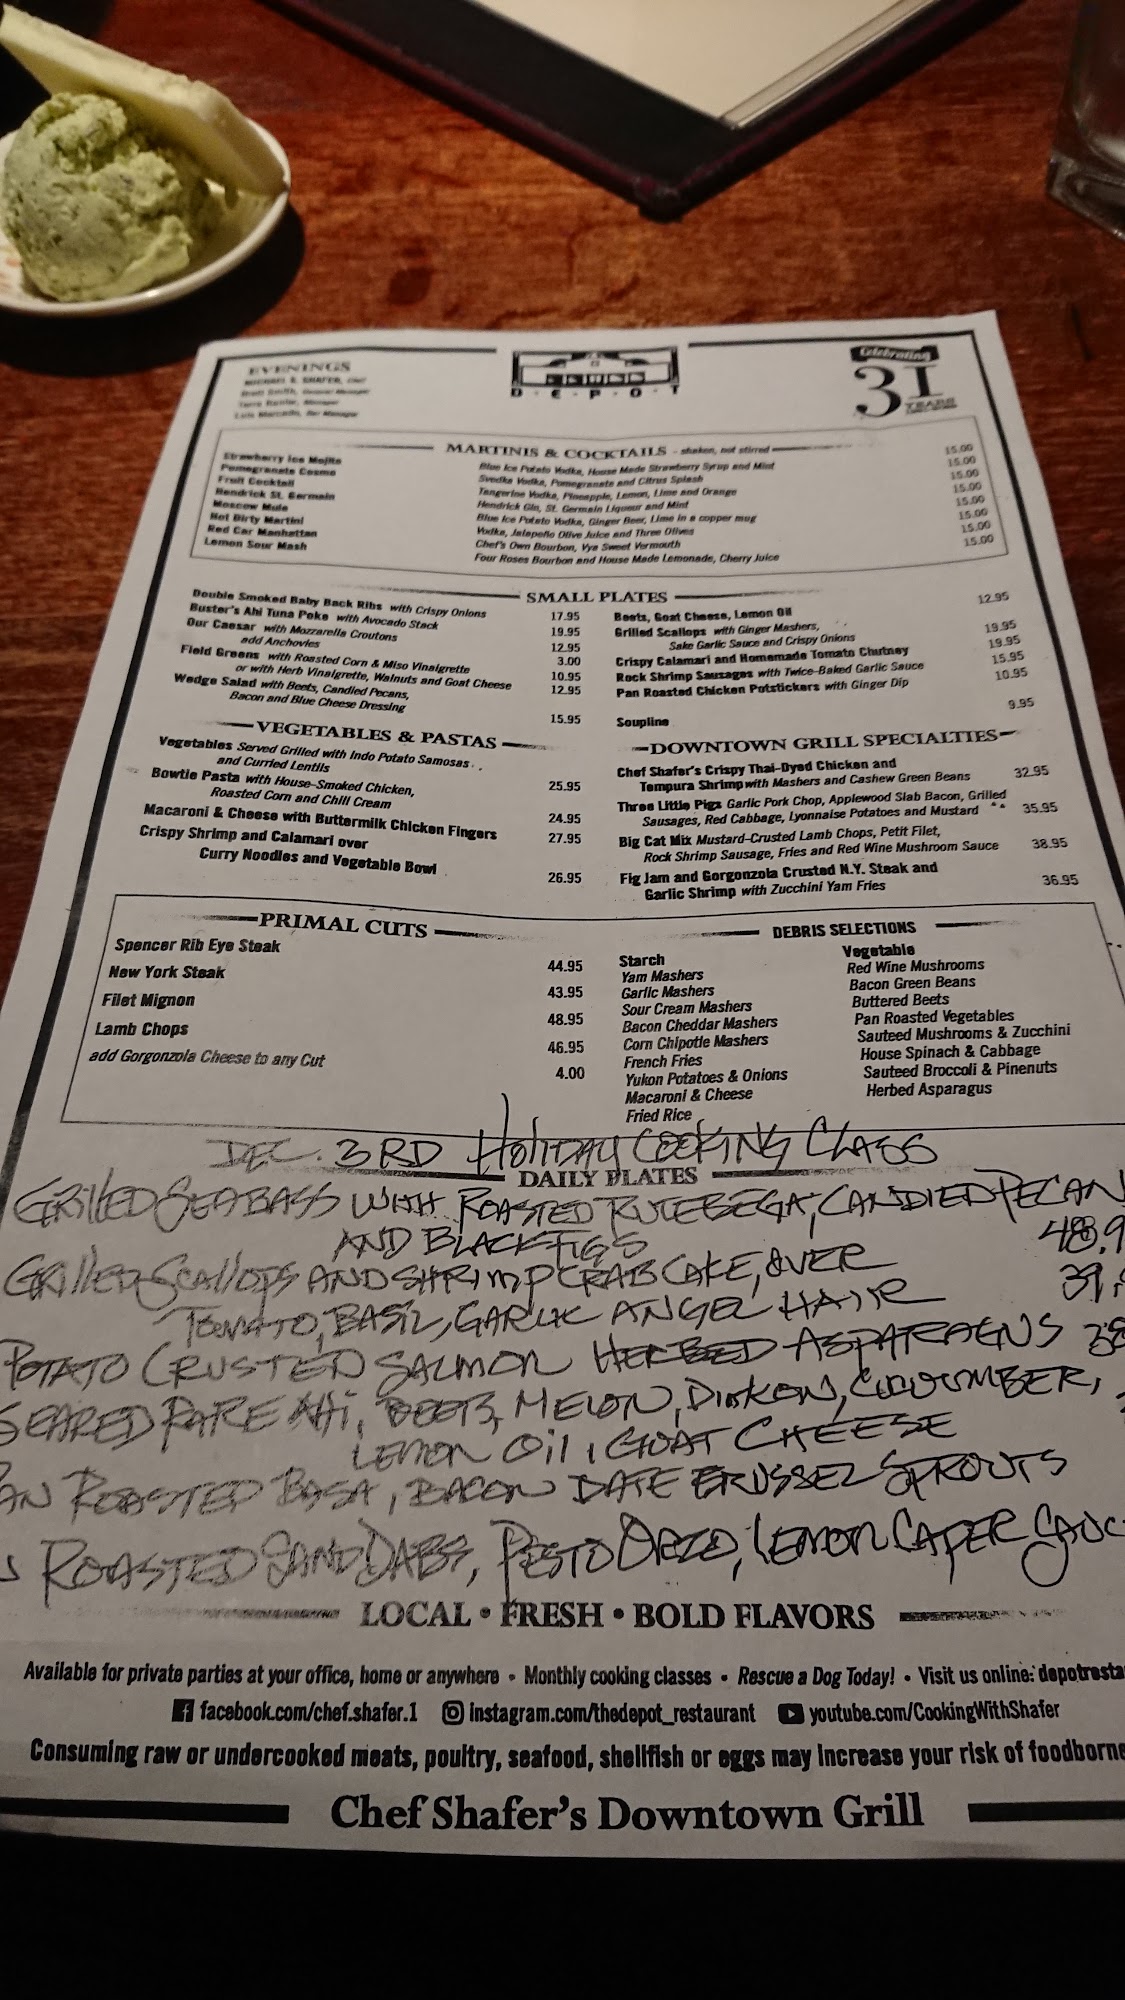 EVENINGS
MICHAEL S. SHAFER, Chef
DEPOT
Celebrating
31
YEARS
MARTINIS & COCKTAILS - shaken, not stirred
Strawberry Ice Mojito Blue Ice Potato Vodka, House Made Strawberry Syrup and Mint 15.00
Pomegranate Cosmo Svedka Vodka, Pomegranate and Citrus Splash 15.00
Fruit Cocktail Tangerine Vodka, Pineapple, Lemon, Lime and Orange 15.00
Hendrick St. Germain Hendrick Gin, St. Germain Liqueur and Mint 15.00
Moscow Mule Blue Ice Potato Vodka, Ginger Beer, Lime in a copper mug 15.00
Hot Dirty Martini Vodka, Jalapeño Olive Juice and Three Olives 15.00
Red Car Manhattan Chef's Own Bourbon, Vya Sweet Vermouth 15.00
Lemon Sour Mash Four Roses Bourbon and House Made Lemonade, Cherry Juice 15.00
SMALL PLATES
Double Smoked Baby Back Ribs with Crispy Onions 17.95
Buster's Ahi Tuna Poke with Avocado Stack 19.95
Our Caesar with Mozzarella Croutons 12.95
add Anchovies 3.00
Field Greens with Roasted Corn & Miso Vinaigrette 10.95
or with Herb Vinaigrette, Walnuts and Goat Cheese 12.95
Wedge Salad with Beets, Candied Pecans,
Bacon and Blue Cheese Dressing 15.95
Beets, Goat Cheese, Lemon Oil 12.95
Grilled Scallops with Ginger Mashers,
Sake Garlic Sauce and Crispy Onions 19.95
Crispy Calamari and Homemade Tomato Chutney 19.95
Rock Shrimp Sausages with Twice-Baked Garlic Sauce 15.95
Pan Roasted Chicken Potstickers with Ginger Dip 10.95
Soupline 9.95
VEGETABLES & PASTAS
Vegetables Served Grilled with Indo Potato Samosas
and Curried Lentils 25.95
Bowtie Pasta with House-Smoked Chicken,
Roasted Corn and Chili Cream 24.95
Macaroni & Cheese with Buttermilk Chicken Fingers 27.95
Crispy Shrimp and Calamari over
Curry Noodles and Vegetable Bowl 26.95
DOWNTOWN GRILL SPECIALTIES
Chef Shafer's Crispy Thai-Dyed Chicken and
Tempura Shrimp with Mashers and Cashew Green Beans 32.95
Three Little Pigs Garlic Pork Chop, Applewood Slab Bacon, Grilled
Sausages, Red Cabbage, Lyonnaise Potatoes and Mustard 35.95
Big Cat Mix Mustard-Crusted Lamb Chops, Petit Filet,
Rock Shrimp Sausage, Fries and Red Wine Mushroom Sauce 38.95
Fig Jam and Gorgonzola Crusted N.Y. Steak and
Garlic Shrimp with Zucchini Yam Fries 36.95
PRIMAL CUTS
Spencer Rib Eye Steak 44.95
New York Steak 43.95
Filet Mignon 48.95
Lamb Chops 46.95
add Gorgonzola Cheese to any Cut 4.00
DEBRIS SELECTIONS
Starch
Yam Mashers
Garlic Mashers
Sour Cream Mashers
Bacon Cheddar Mashers
Corn Chipotle Mashers
French Fries
Yukon Potatoes & Onions
Macaroni & Cheese
Fried Rice
Vegetable
Red Wine Mushrooms
Bacon Green Beans
Buttered Beets
Pan Roasted Vegetables
Sauteed Mushrooms & Zucchini
House Spinach & Cabbage
Sauteed Broccoli & Pinenuts
Herbed Asparagus
DEC. 3RD HOLIDAY COOKING CLASS
DAILY PLATES
GRILLED SEABASS WITH ROASTED RUTEBEGA, CANDIED PECAN
AND BLACK FIGS 48.9
GRILLED SCALLOPS AND SHRIMP CRAB CAKE, OVER 39.
TOMATO, BASIL, GARLIC ANGEL HAIR
POTATO CRUSTED SALMON HERBED ASPARAGNS 38
SEARED RARE AHI, BEETS, MELON, DIAKON, CUCUMBER,
LEMON OIL, GOAT CHEESE
AN ROASTED BASA, BACON DATE BRUSSEL SPROUTS
ROASTED SAND DABS, PESTO ORZO, LEMON CAPER SAUC
LOCAL • FRESH • BOLD FLAVORS
Available for private parties at your office, home or anywhere • Monthly cooking classes • Rescue a Dog Today! • Visit us online: depotresta
facebook.com/chef.shafer.1 instagram.com/thedepot_restaurant youtube.com/CookingWithShafer
Consuming raw or undercooked meats, poultry, seafood, shellfish or eggs may increase your risk of foodborne
Chef Shafer's Downtown Grill